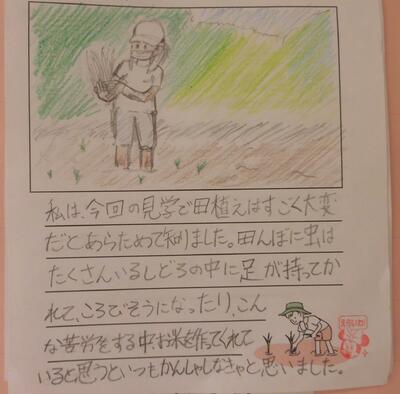 私は、今回の見学で田植えはすごく大変
だとあらためて知りました。田んぼに虫は
たくさんいるしどろの中に足が持ってか
れて、ころびそうになったり、こん
な苦労をする中、お米を作てくれて
いると思うといつもかんしゃしなきゃと思いました。